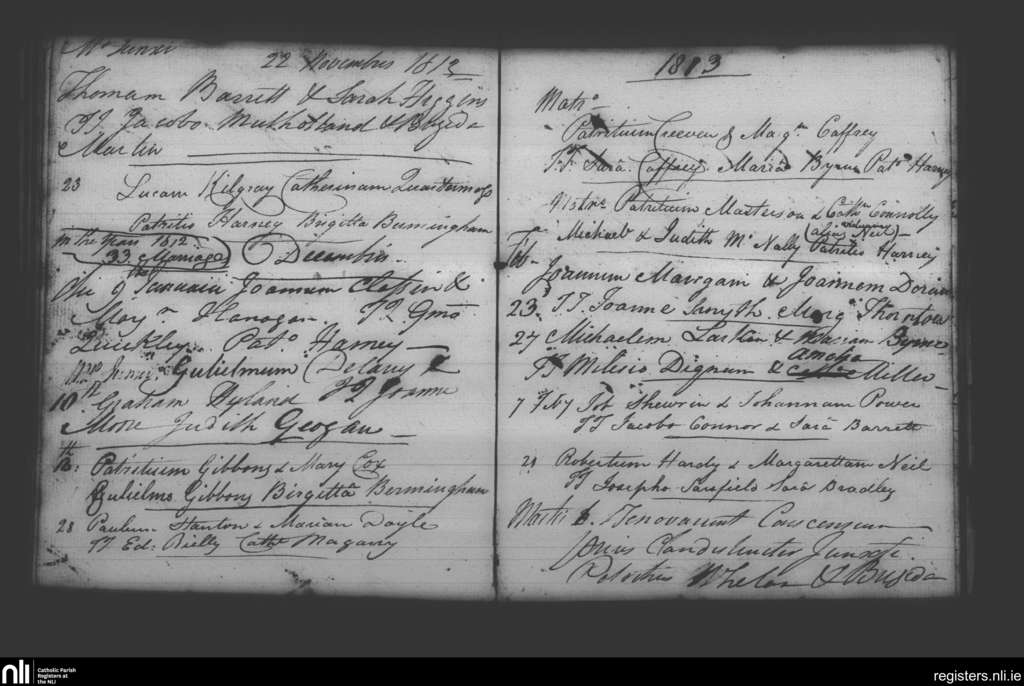 Mo Junxi
22 Novembris 1812
Thomam Barrett & Sarah Higgins
TT Jacobo Mulholland & Brigida
Martin
23 Lucam Kilgray Catherinam
Patritio Harney Brigitta Bermingham
In the Year 1812
33 Marriages Decembris
Die 9 Januarii Joannem & 
Mary Hanagan TT Gmo
Quickley Pato Harney
Junxi Gulielmum Delany &
10th Graham Hyland TT Joanne
Mone Judith Geogan
Patritium Gibbons & Mary Cox
Gulielmo Gibbons Birgitta Bermingham
28 Paulum Hanlon & Marian Doyle
TT Ed: Reilly Cathe Magarry
1813
Matro
Patritium Creeven & Magtm Caffrey
TT Sara Caffrey Maria Byrne Pato Harney
Matrie Patritium Masterson & Cathn Connolly
alias Neil
Michael & Judith Mc Nally Patritio Harney
Feb
Joannem Maurgam & Joannem Doran
23 TT Joanne Smyth Marg Thornton
27 Michaelem Larkin & Mariam Byrne
Amelia
TT Milesio Dignum & Miller
7 Job Shewrin & Johannam Power
TT Jacobo Connor & Sara Barrett
21 Robertum Hardy & Margarettam Neil
TT Josepho Sarsfield Sara Bradley
Martii 6. Renovarunt Consensum
prius Clandestinter Juncti
Patritius Whelan & Brigida
nli
Catholic Parish
Registers at
the NLI
registers.nli.ie